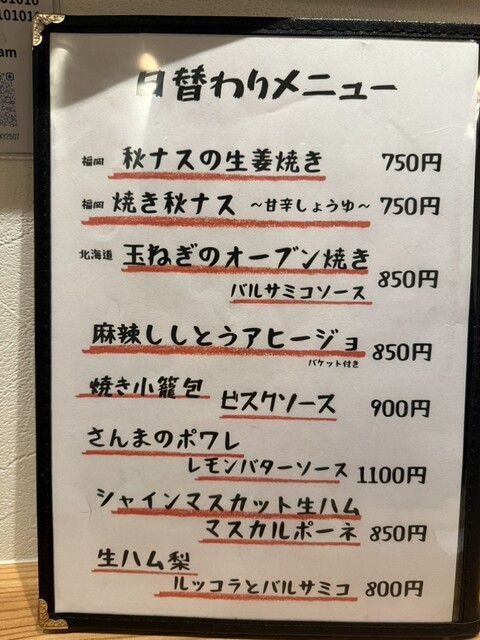 01010
101010
am
日替わりメニュー
福岡 秋ナスの生姜焼き 750円
福岡 焼き秋ナス ～甘辛しょうゆ～ 750円
北海道 玉ねぎのオーブン焼き
バルサミコソース 850円
麻辣ししとうアヒージョ 850円
バケット付き
焼き小籠包
ビスクソース 900円
さんまのポワレ
レモンバターソース 1100円
シャインマスカット生ハム
マスカルポーネ 850円
生ハム梨
ルッコラとバルサミコ 800円